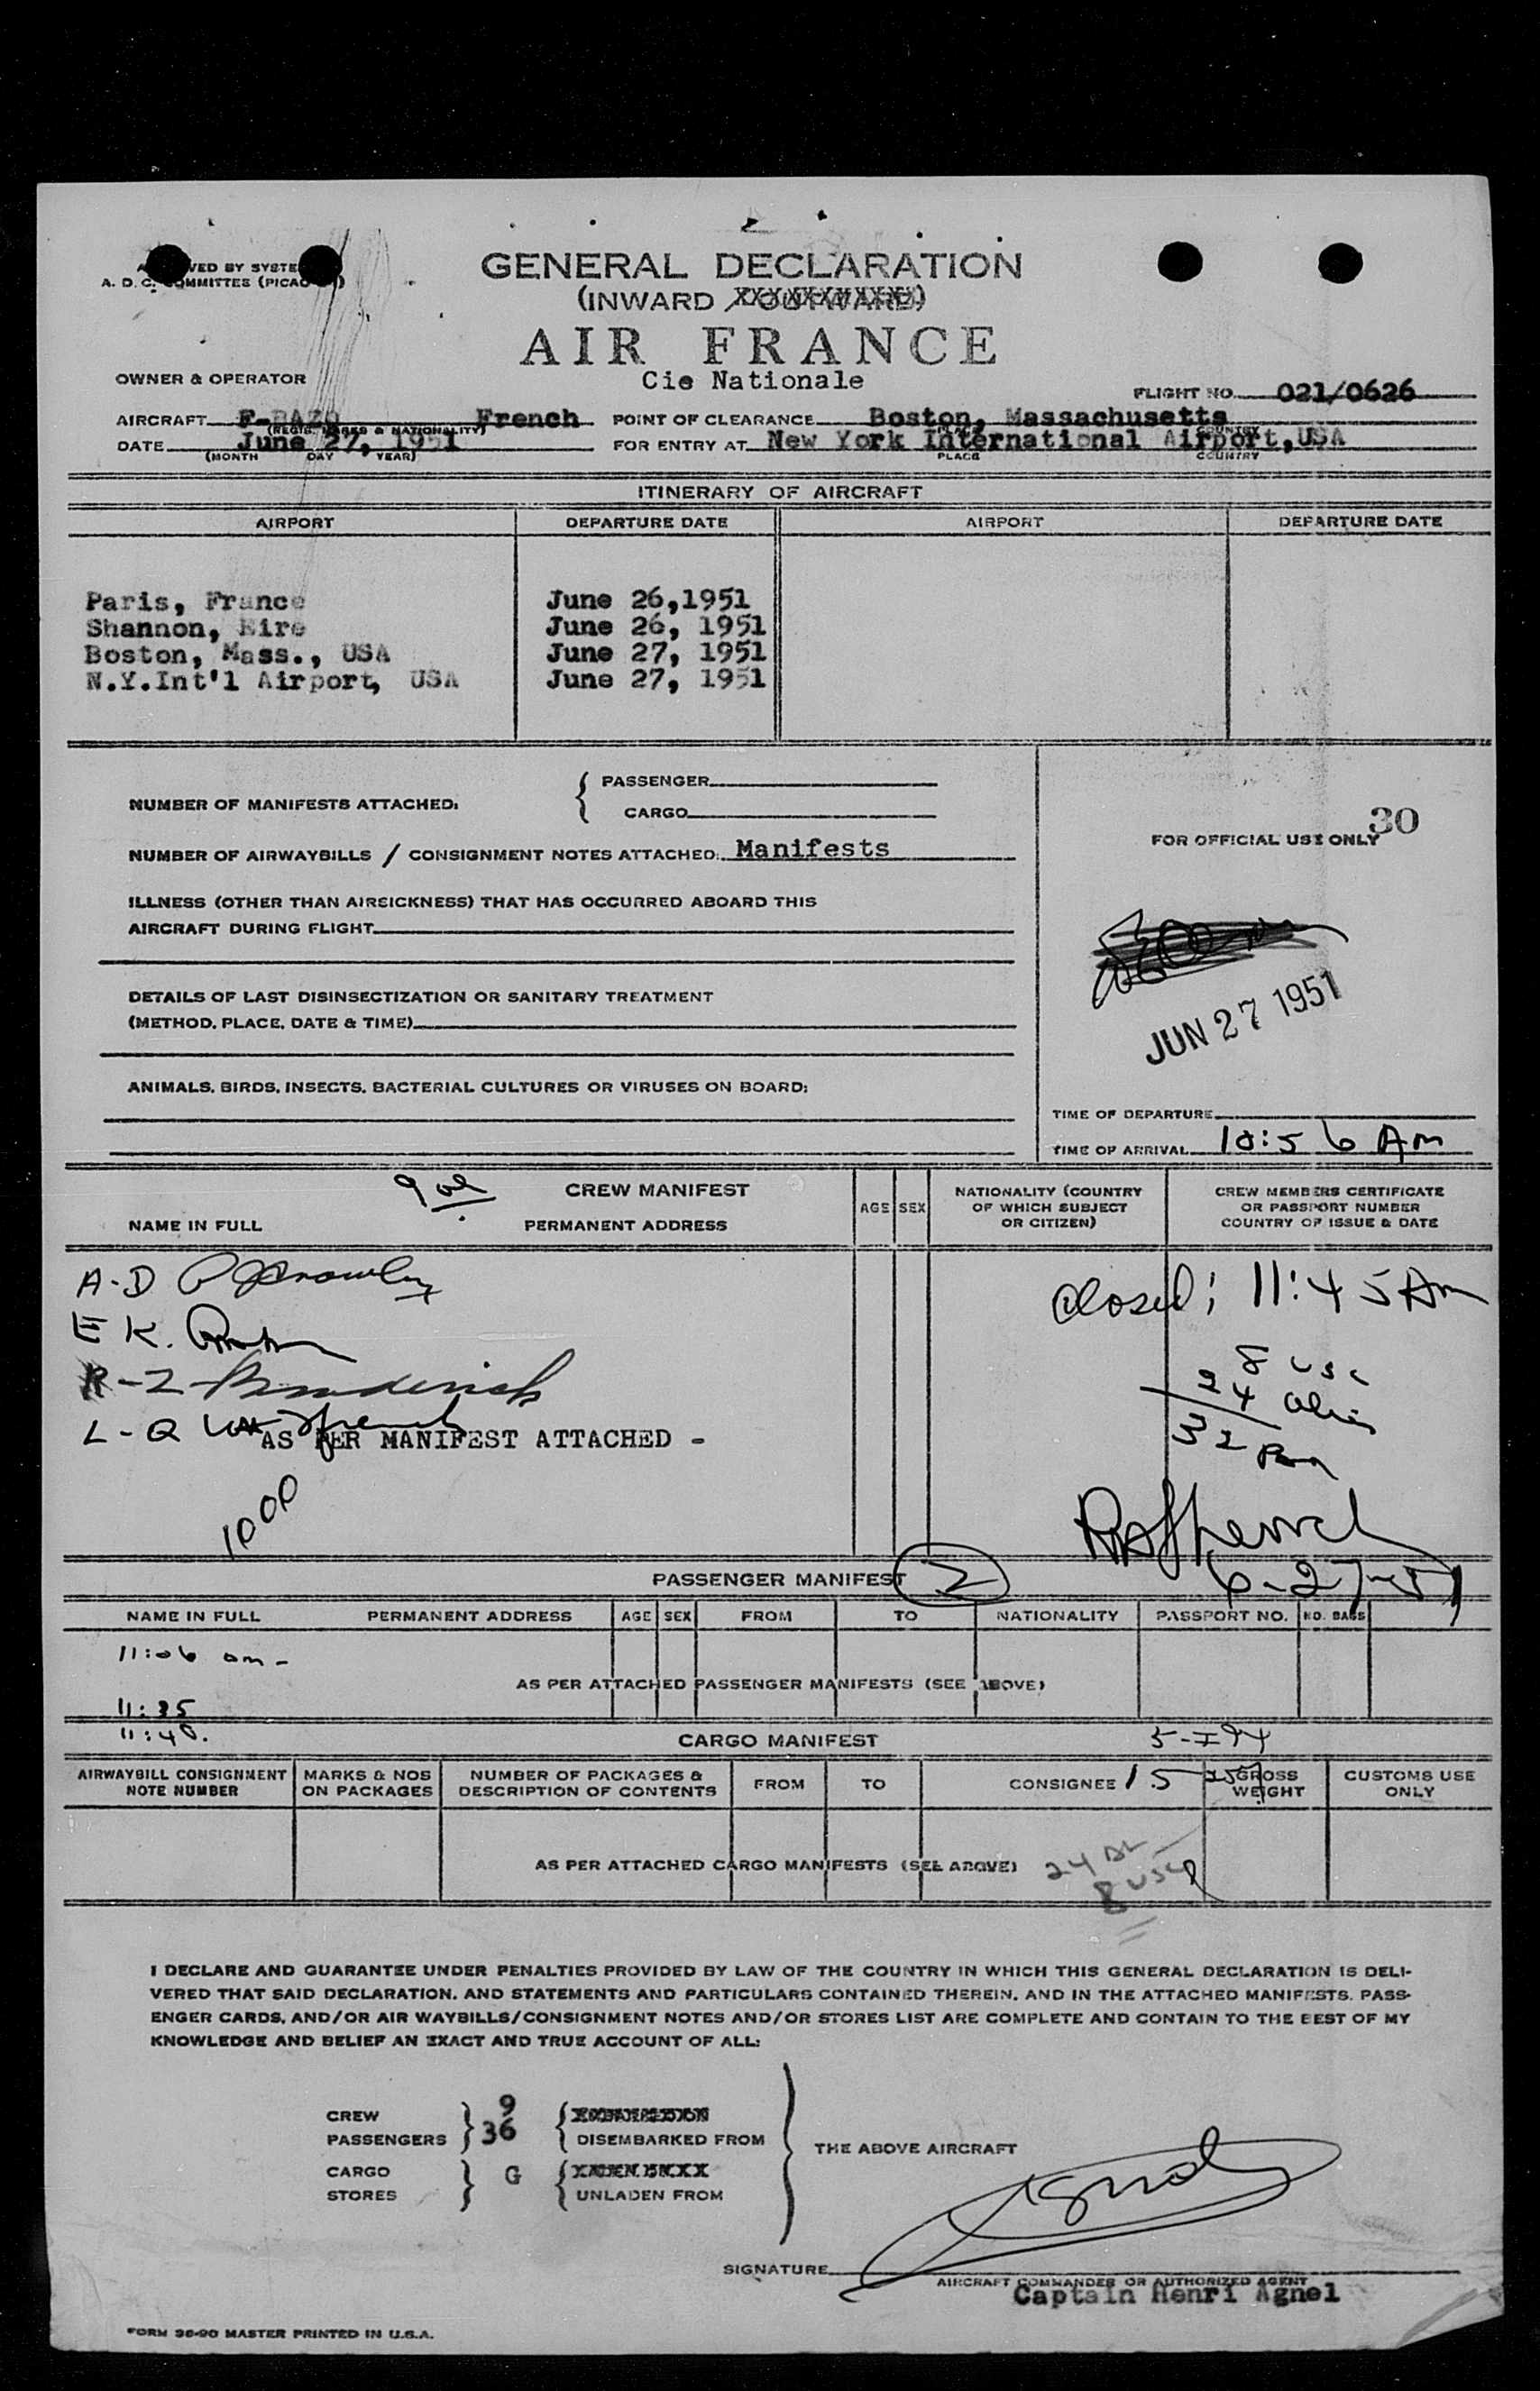 GENERAL DECLARATION
(INWARD
A. D. C. COMMITTEE (PICAO
AIR FRANCE
Cie Nationale
OWNER & OPERATOR
FLIGHT NO. 021/0626
AIRCRAFT French POINT OF CLEARANCE Boston, Massachusetts
(REGIS. MARKS & NATIONALITY) PLACE COUNTRY
DATE June 27, 1951 FOR ENTRY AT New York International Airport,USA
(MONTH DAY YEAR) PLACE COUNTRY
ITINERARY OF AIRCRAFT
AIRPORT DEPARTURE DATE AIRPORT DEPARTURE DATE
Paris, France June 26,1951
Shannon, Eire June 26, 1951
Boston, Mass., USA June 27, 1951
N.Y.Int'l Airport, USA June 27, 1951
NUMBER OF MANIFESTS ATTACHED: PASSENGER
CARGO
30
FOR OFFICIAL USE ONLY
NUMBER OF AIRWAYBILLS / CONSIGNMENT NOTES ATTACHED: Manifests
ILLNESS (OTHER THAN AIRSICKNESS) THAT HAS OCCURRED ABOARD THIS
AIRCRAFT DURING FLIGHT
DETAILS OF LAST DISINSECTIZATION OR SANITARY TREATMENT
(METHOD, PLACE, DATE & TIME)
JUN 27 1951
ANIMALS, BIRDS, INSECTS, BACTERIAL CULTURES OR VIRUSES ON BOARD:
TIME OF DEPARTURE
TIME OF ARRIVAL 10:56 Am
CREW MANIFEST
NAME IN FULL PERMANENT ADDRESS AGE SEX NATIONALITY (COUNTRY OF WHICH SUBJECT OR CITIZEN) CREW MEMBERS CERTIFICATE OR PASSPORT NUMBER COUNTRY OF ISSUE & DATE
A-D
Closed: 11:45 Am
E K.
8 usc
R-2 Broderick
24
32
L-Q
AS PER MANIFEST ATTACHED -
1000
6-27-51
PASSENGER MANIFEST 2
NAME IN FULL PERMANENT ADDRESS AGE SEX FROM TO NATIONALITY PASSPORT NO. NO. BAGS
11:06 am -
AS PER ATTACHED PASSENGER MANIFESTS (SEE ABOVE)
11:35
11:40.
CARGO MANIFEST
AIRWAYBILL CONSIGNMENT NOTE NUMBER MARKS & NOS ON PACKAGES NUMBER OF PACKAGES & DESCRIPTION OF CONTENTS FROM TO CONSIGNEE GROSS WEIGHT CUSTOMS USE ONLY
AS PER ATTACHED CARGO MANIFESTS (SEE ABOVE)
24
8
I DECLARE AND GUARANTEE UNDER PENALTIES PROVIDED BY LAW OF THE COUNTRY IN WHICH THIS GENERAL DECLARATION IS DELI-
VERED THAT SAID DECLARATION, AND STATEMENTS AND PARTICULARS CONTAINED THEREIN, AND IN THE ATTACHED MANIFESTS, PASS-
ENGER CARDS, AND/OR AIR WAYBILLS/CONSIGNMENT NOTES AND/OR STORES LIST ARE COMPLETE AND CONTAIN TO THE BEST OF MY
KNOWLEDGE AND BELIEF AN EXACT AND TRUE ACCOUNT OF ALL:
CREW 9
PASSENGERS 36 DISEMBARKED FROM
THE ABOVE AIRCRAFT
CARGO G
STORES UNLADEN FROM
SIGNATURE
AIRCRAFT COMMANDER OR AUTHORIZED AGENT
Captain Henri Agnel
FORM 36-90 MASTER PRINTED IN U.S.A.